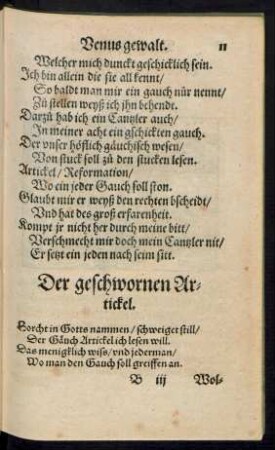 Venus gewalt. 11
Welcher mich dunckt geschicklich sein.
Ich bin allein die sie all kennt/
So baldt man mir ein gauch nůr nennt/
Zů stellen weyß ich jhn behendt.
Darzů hab ich ein Cantzler auch/
In meiner acht ein gschickten gauch.
Der vnser höflich gäuchisch wesen/
Von stuck soll zů den stucken lesen.
Artickel/ Reformation/
Wo ein jeder Gauch soll ston.
Glaubt mir er weyß den rechten bscheidt/
Vnd hat des groß erfarenheit.
Kompt jr nicht her durch meine bitt/
Verschmecht mir doch mein Cantzler nit/
Er setzt ein jeden nach seim sitt.
Der geschwornen Ar-
tickel.
Horcht in Gotts nammen/ schweiget still/
Der Gäuch Artickel ich lesen will.
Das menigklich wiss/ vnd jederman/
Wo man den Gauch soll greiffen an.
B iij Wol-